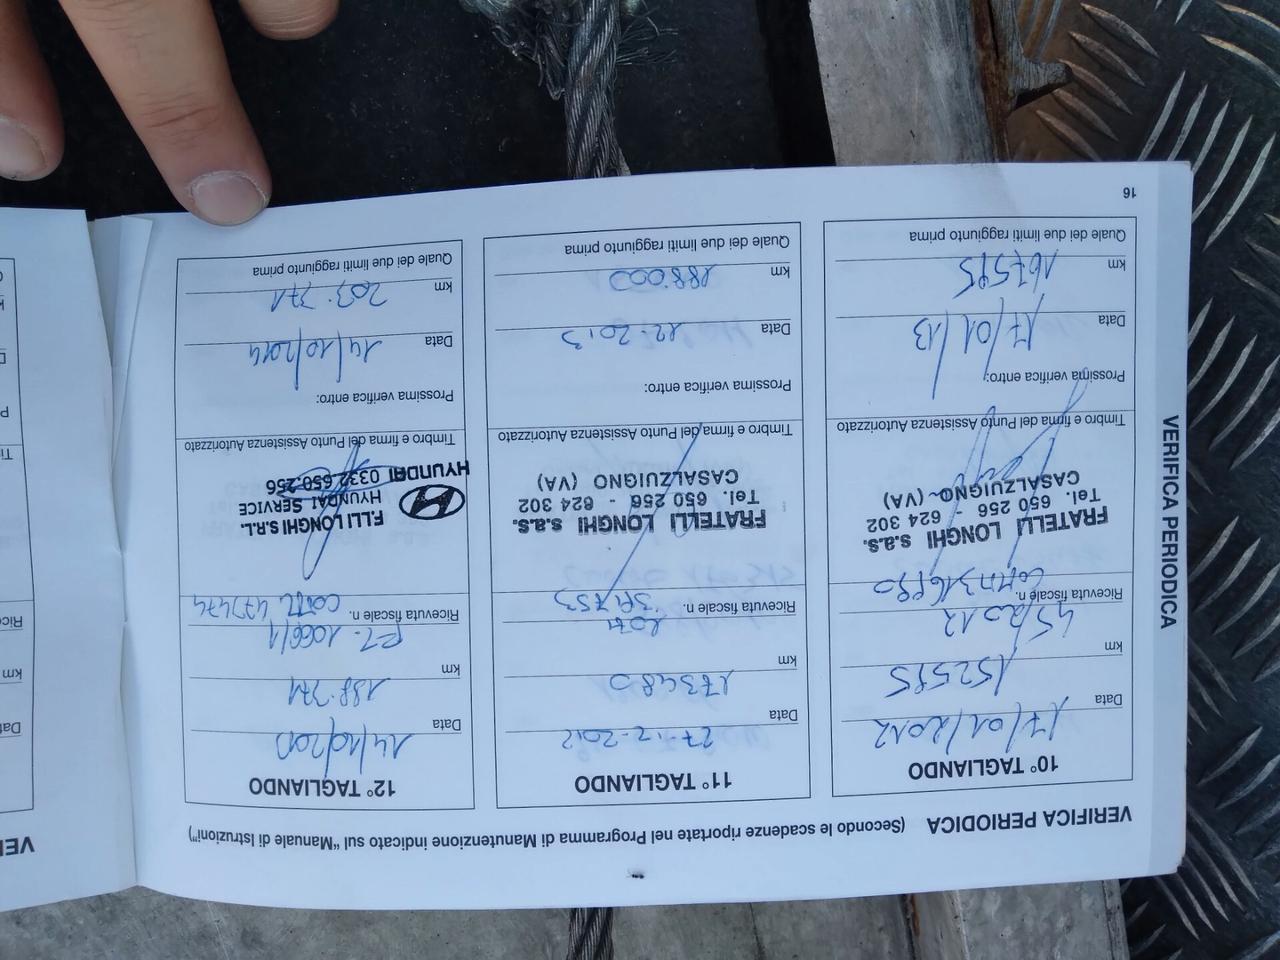 VERIFICA PERIODICA (Secondo le scadenze riportate nel Programma di Manutenzione indicato sul "Manuale di Istruzioni")
10° TAGLIANDO
Data 17/01/2012
km 152595
45/2012
Ricevuta fiscale n.
FRATELLI LONGHI s.a.s.
Tel. 650 256 - 624 302
CASALZUIGNO (VA)
Timbro e firma del Punto Assistenza Autorizzato
Prossima verifica entro:
Data 17/01/13
km 167595
Quale dei due limiti raggiunto prima
11° TAGLIANDO
Data
km 173480
Ricevuta fiscale n.
FRATELLI LONGHI s.a.s.
Tel. 650 256 - 624 302
CASALZUIGNO (VA)
Timbro e firma del Punto Assistenza Autorizzato
Prossima verifica entro:
Data 12-2013
km 188000
Quale dei due limiti raggiunto prima
12° TAGLIANDO
Data
km 188.771
Ricevuta fiscale n.
F.LLI LONGHI S.R.L.
HYUNDAI SERVICE
HYUNDAI 0332 650.256
Timbro e firma del Punto Assistenza Autorizzato
Prossima verifica entro:
Data 14/10/2014
km 203.771
Quale dei due limiti raggiunto prima
VERIFICA PERIODICA
16